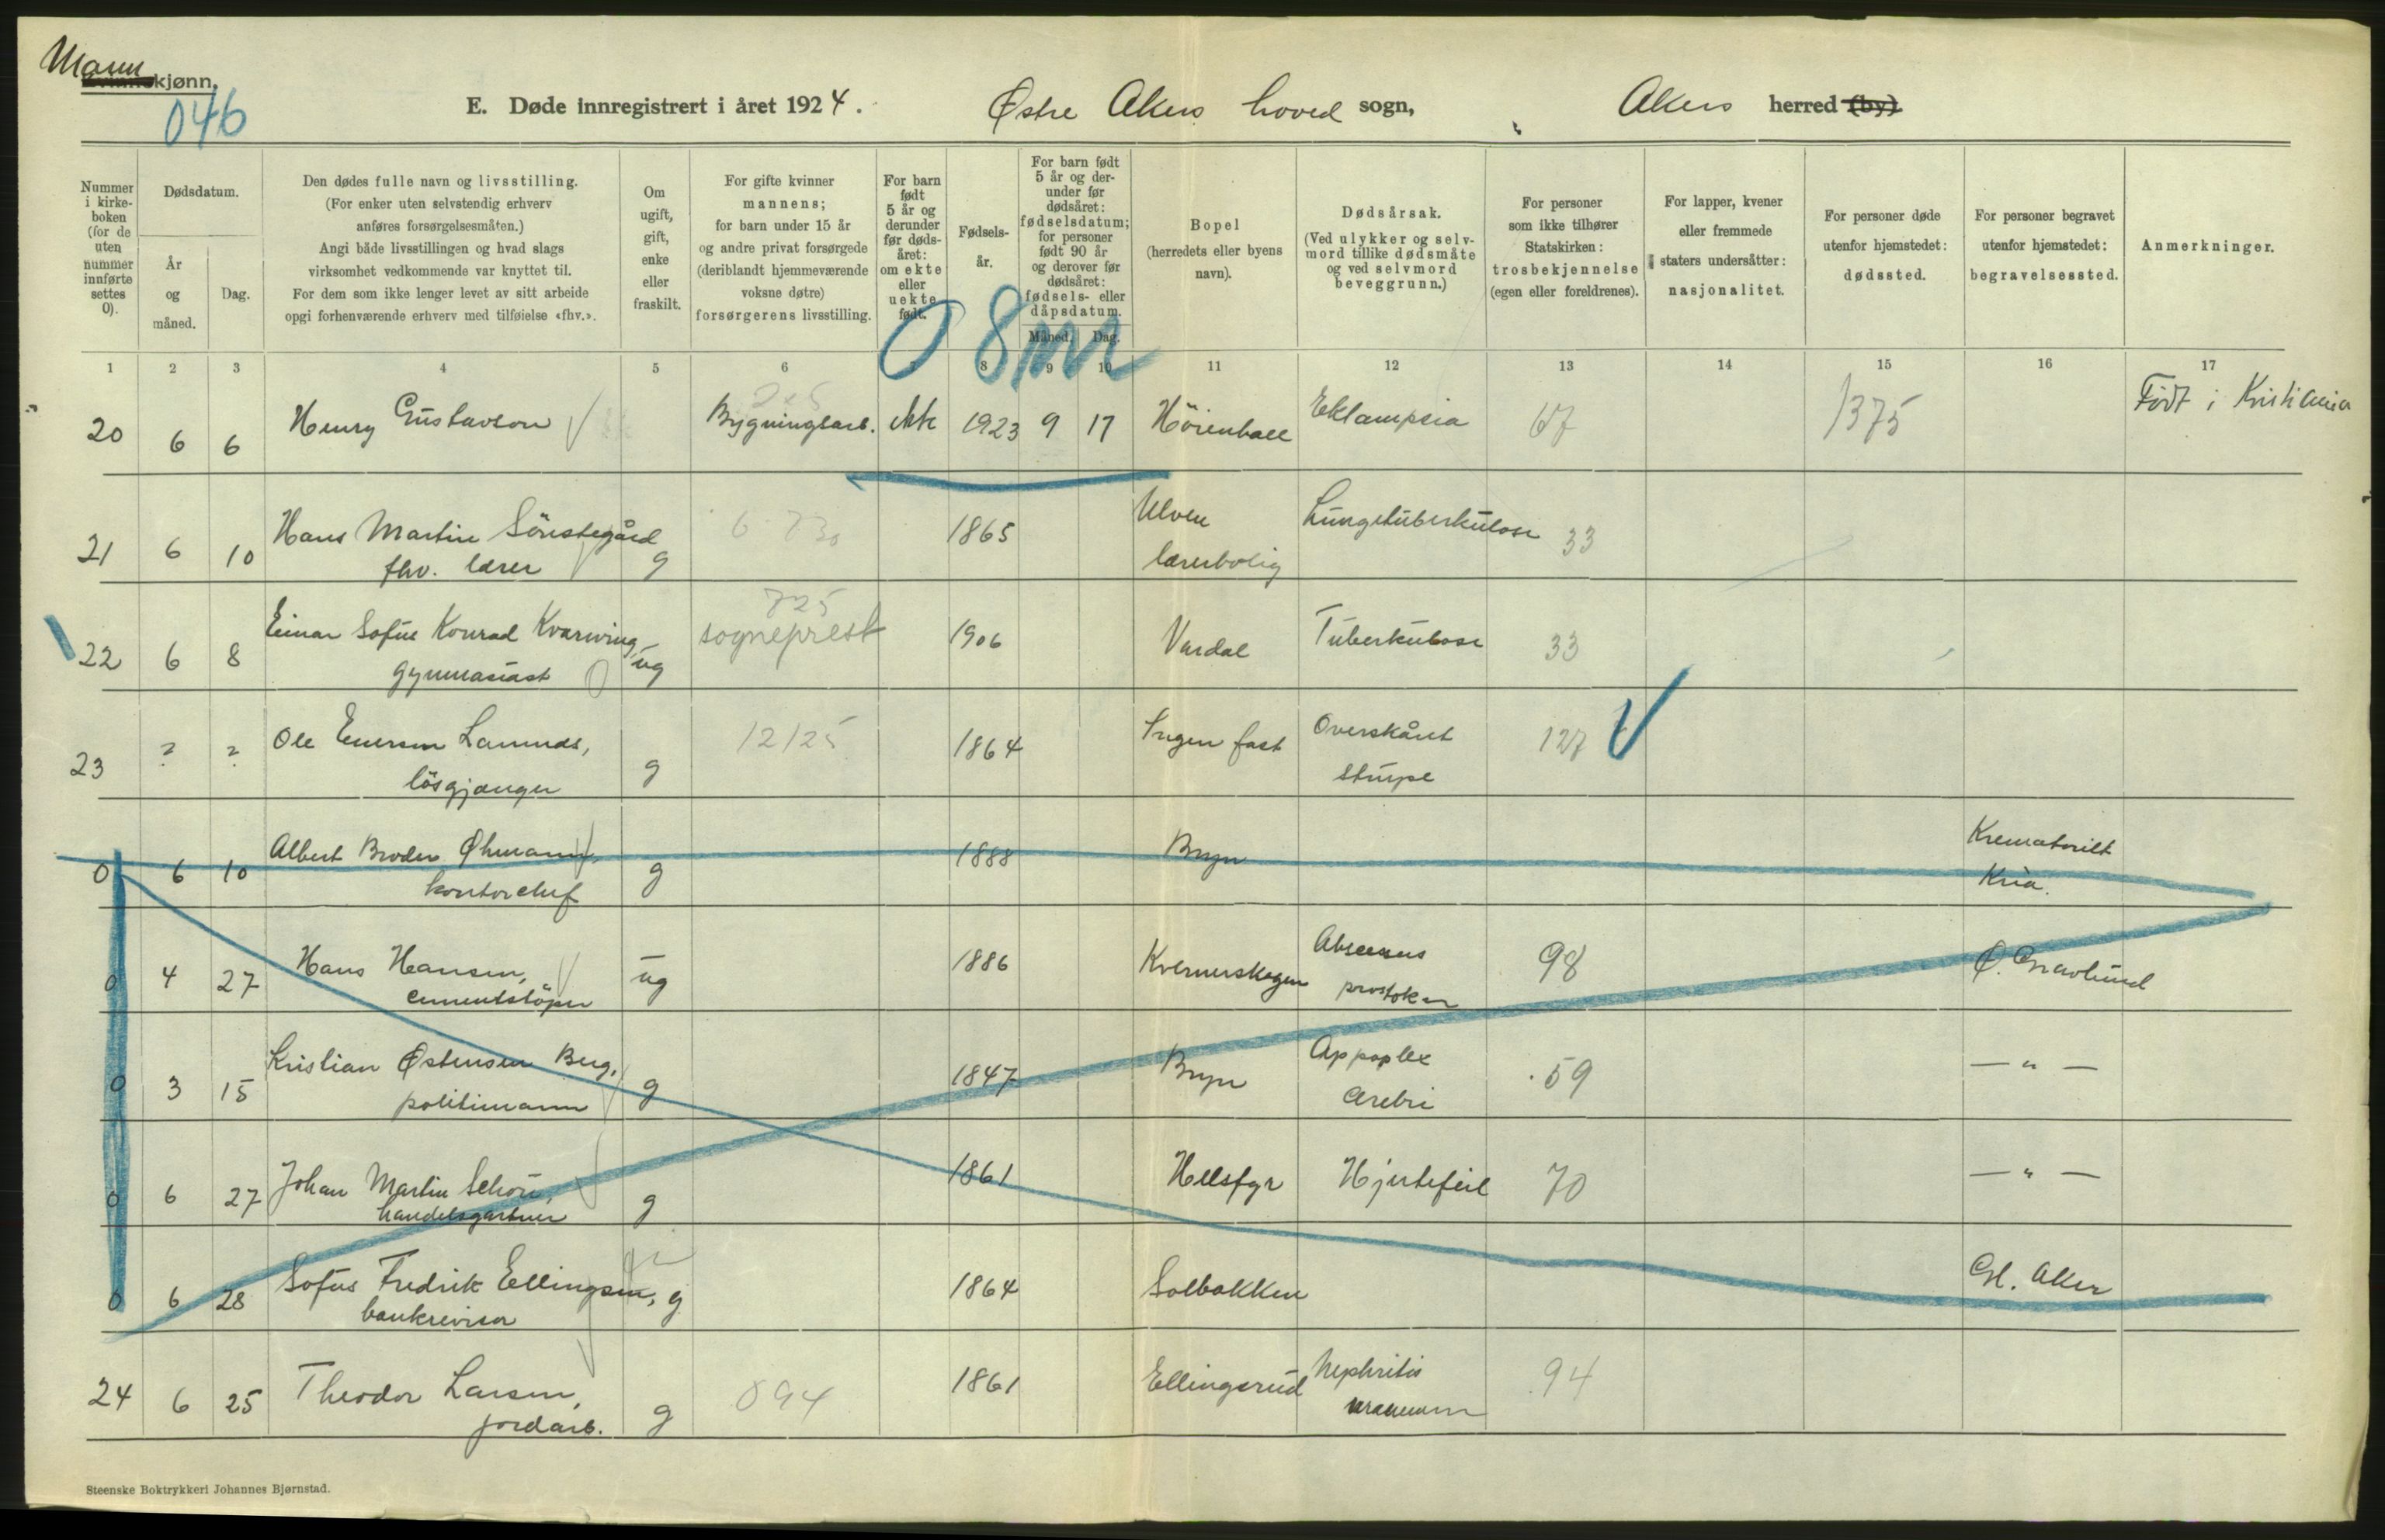 Mann
kjønn.
046
E. Døde innregistrert i året 1924. Østre Akers hoved sogn, Akers herred (by)
Nummer i kirke-boken (for de uten nummer innførte settes 0).
Dødsdatum.
År og måned.
Dag.
Den dødes fulle navn og livsstilling.
(For enker uten selvstendig erhverv
anføres forsørgelsesmåten.)
Angi både livsstillingen og hvad slags
virksomhet vedkommende var knyttet til.
For dem som ikke lenger levet av sitt arbeide
opgi forhenværende erhverv med tilføielse «fhv.».
Om ugift, gift, enke eller fraskilt.
For gifte kvinner
mannens;
for barn under 15 år
og andre privat forsørgede
(deriblandt hjemmeværende
voksne døtre)
forsørgerens livsstilling.
For barn født 5 år og derunder før døds-året: om ekte eller uekte født.
Fødsels-år.
For barn født
5 år og der-
under før
dødsåret:
fødselsdatum;
for personer
født 90 år
og derover før
dødsåret:
fødsels- eller
dåpsdatum.
Måned. Dag.
Bopel
(herredets eller byens
navn).
Dødsårsak.
(Ved ulykker og selv-
mord tillike dødsmåte
og ved selvmord
beveggrunn.)
For personer
som ikke tilhører
Statskirken:
trosbekjennelse
(egen eller foreldrenes).
For lapper, kvener
eller fremmede
staters undersåtter:
nasjonalitet.
For personer døde
utenfor hjemstedet:
dødssted.
For personer begravet
utenfor hjemstedet:
begravelsessted.
Anmerkninger.
0 8 mnd
1 2 3 4 5 6 7 8 9 10 11 12 13 14 15 16 17
20 6 6 Henry Gustavson Bygningsarb. ekte 1923 9 17 Höienhall Eklampsia 67 1375 Født i Kristiania
21 6 10 Hans Martin Sönstegård g 6 730 1865 Ulven Lungetuberkulose 33
fhv. lærer lærerbolig
725
22 6 8 Einar Sofus Konrad Kvarving ug sogneprest 1906 Vardal Tuberkulose 33
gymnasiast
23 ? ? Ole Enersen g 12125 1864 Ingen fast Overskåret 127
lösgjænger strupe
0 6 10 Albert Broder Øhmann g 1888 Bryn Krematoriet
kontorchef Kria.
0 4 27 Hans Hansen, ug 1886 Kvernerskogen Abscessus 98 Ø. Gravlund
cementstöper
0 3 15 Kristian Østensen Berg, g 1847 Bryn Appoplex 59 — " —
politimann cerebri
0 6 27 Johan Martin Schou, g 1861 Helsfyr Hjertefeil 70 — " —
handelsgartner
0 6 28 Sofus Fredrik Ellingsen, g 1864 Solbakken Gl. Aker
bankrevisor
24 6 25 Theodor Larsen, g 094 1861 Ellingsrud Nephritis 94
jordarb.
Steenske Boktrykkeri Johannes Bjørnstad.